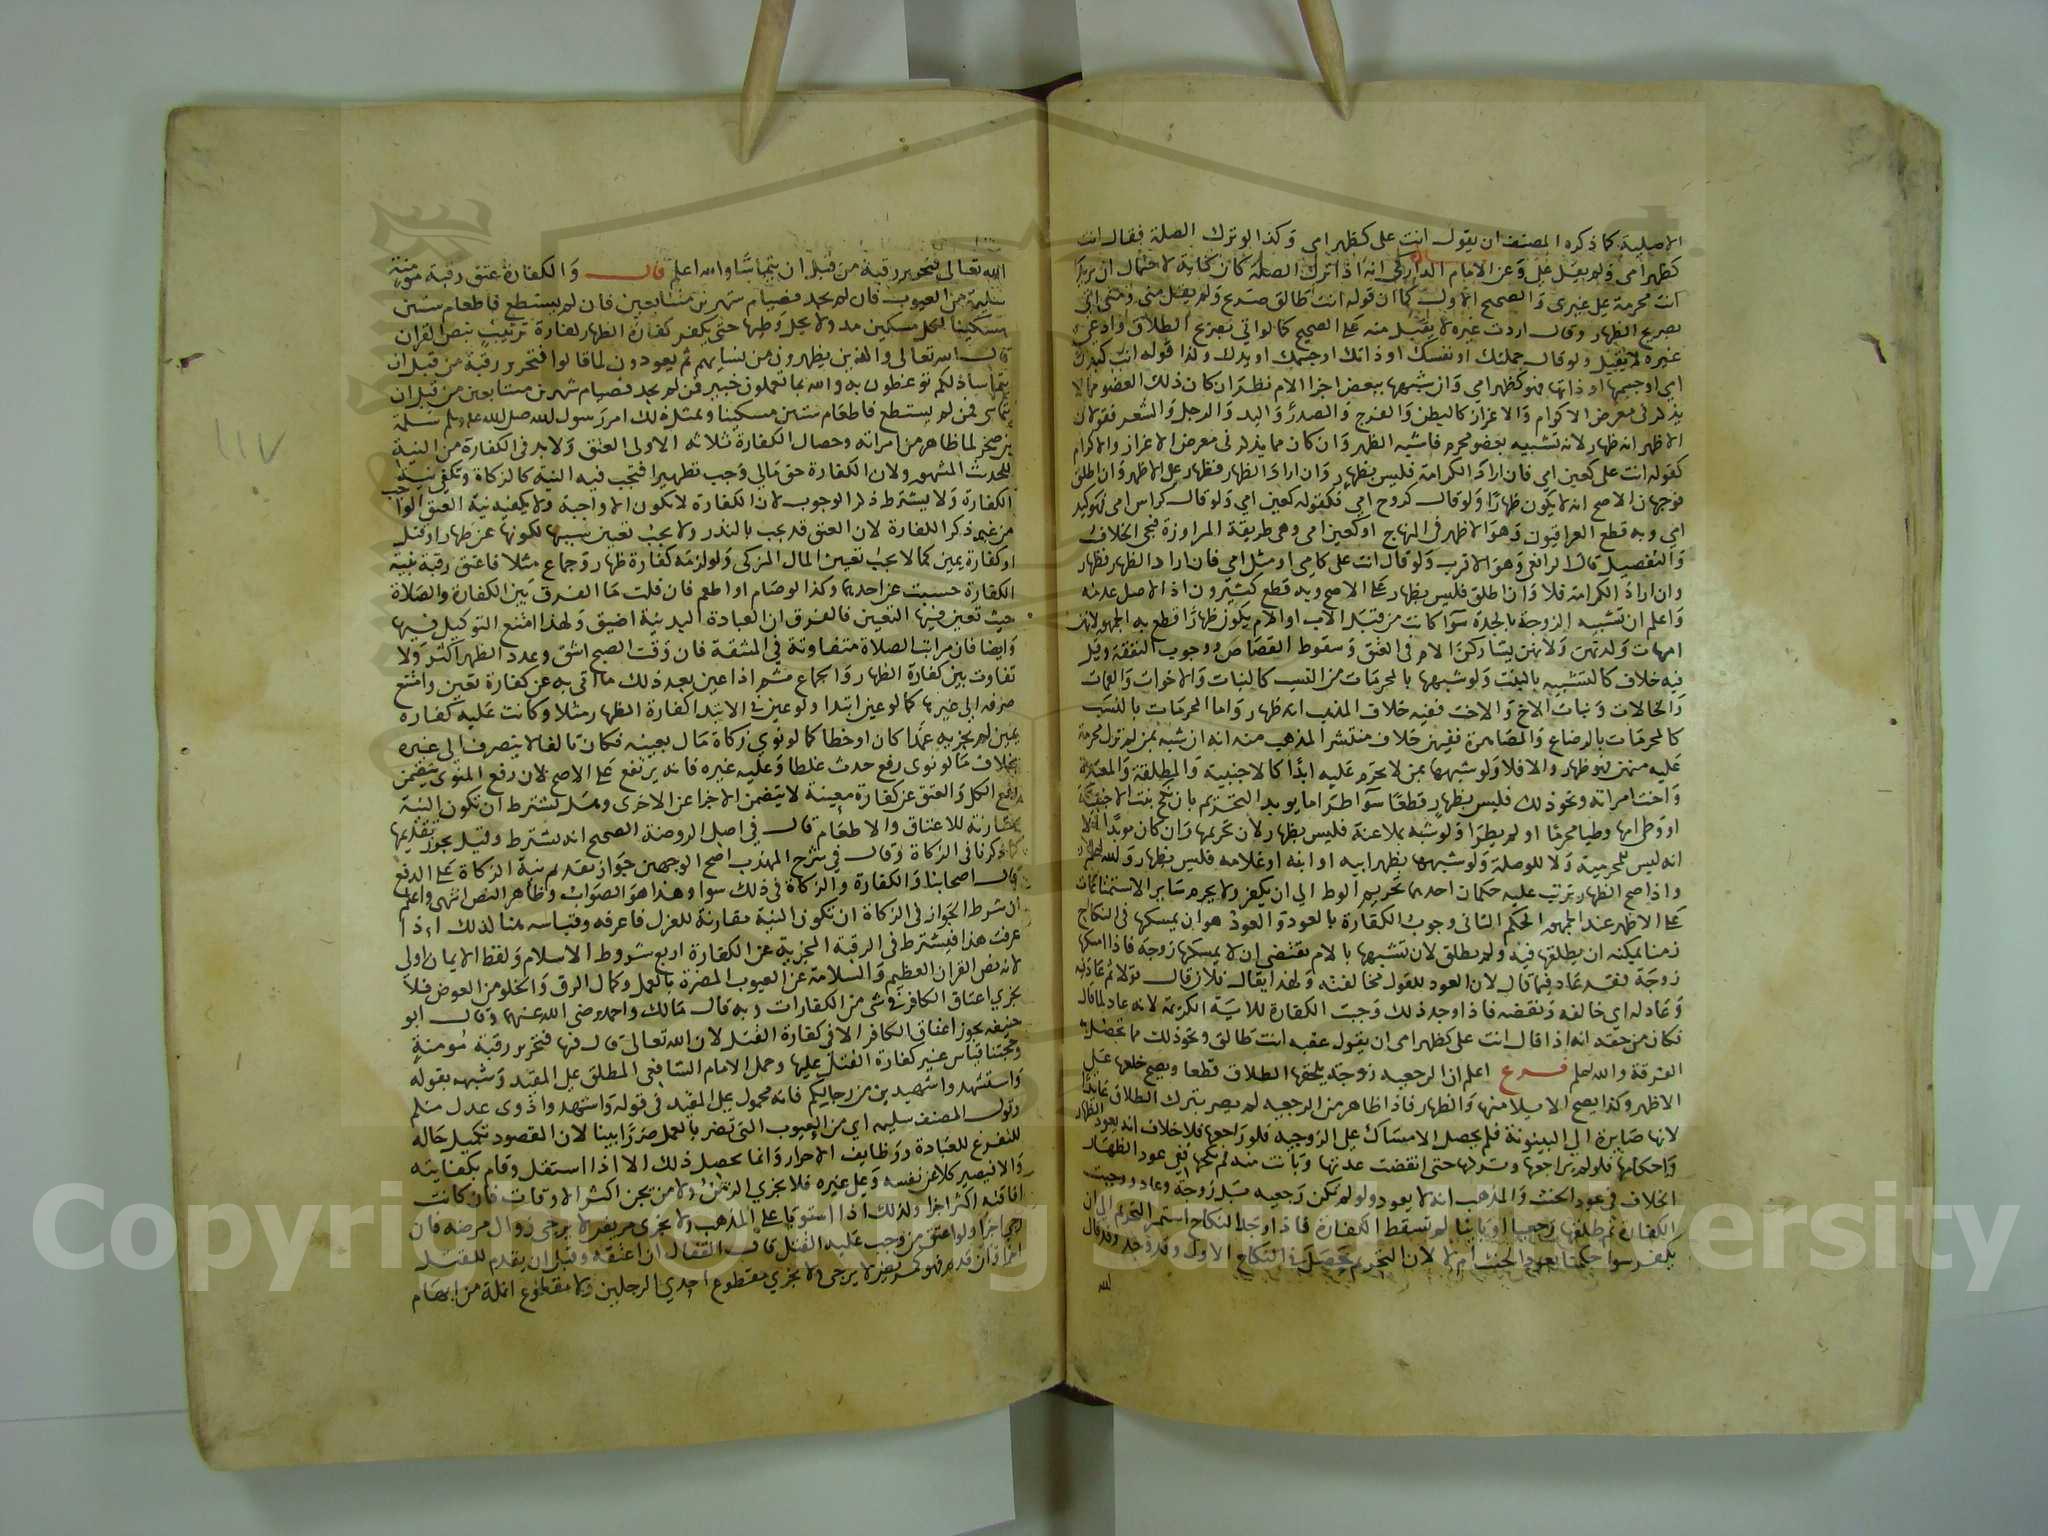 الاصلية كما ذكره المصنف ان يقول انت على كظهر امي وكذا لو ترك الصلة فقال انت
كظهر امي ولم يقل علي وعن الامام الداركي انه اذا ترك الصلة كان كناية لاحتمال ان يريد
انت محرمة على غيري والصحيح الاول كما ان قوله انت طالق صريح ولم يقل مني ومتى اتى
بصريح الظهار وقال اردت غيره لا يقبل منه على الصحيح كما لو اتى بصريح الطلاق وادعى
غيره لا يقبل ولو قال جملتك او نفسك او ذاتك او جسمك او بدنك وكذا قوله انت كبدن
امي او جسمها او ذاتها فهو كظهر امي وان شبهها ببعض اجزا الام نظر ان كان ذلك العضو مما لا
يذكر في معرض الاكرام والاعزاز كالبطن والفرج والصدر واليد والرجل والشعر فقولان
الاظهر انه ظهار لانه تشبيه بعضو محرم فاشبه الظهر وان كان مما يذكر في معرض الاعزاز والاكرام
كقوله انت على كعين امي فان اراد الكرامة فليس بظهار وان اراد الظهار فظهار على الاظهر وان اطلق
فوجهان الاصح انه لا يكون ظهارا ولو قال كروح امي فكقوله كعين امي ولو قال كراس امي فهو كيد
امي وبه قطع العراقيون وهو الاظهر في المنهاج او كعين امي وهي طريقة المراوزة فيجي الخلاف
والتفصيل قال الرافعي وهو الاقرب ولو قال انت على كامي او مثل امي فان اراد الظهار فظهار
وان اراد الكرامة فلا وان اطلق فليس بظهار على الاصح وبه قطع كثيرون اذ الاصل عدمه
واعلم ان تشبيه الزوجة بالجدة سوا كانت من قبل الاب او الام يكون ظهارا قطع به الجمهور لانهن
امهات ولدتهن ولانهن يشاركن الام في العتق وسقوط القصاص ووجوب النفقة وقيل
فيه خلاف كالتشبيه بالبنت ولو شبهها بالمحرمات من النسب كالبنات والاخوات والعمات
والخالات وبنات الاخ والاخت ففيه خلاف المذهب انه ظهار واما المحرمات بالسبب
كالمحرمات بالرضاع والمصاهرة ففيهن خلاف منتشر المذهب منه انه ان شبه بمن لم تزل محرمة
عليه منهن فهو ظهار والا فلا ولو شبهها بمن لا يحرم عليه ابدا كالاجنبية والمطلقة والمعتدة
واخت امراته ونحو ذلك فليس بظهار قطعا سوا طرا ما يوبد التحريم بان نكح بنت الاجنبية
او وطئ امها وطيا محرما او لم يطرا ولو شبه بملاعنة فليس بظهار لان تحريمها وان كان موبدا الا
انه ليس للمحرمية ولا للوصلة ولو شبهها بظهر ابيه او ابنه او غلامه فليس بظهار والله اعلم
واذا صح الظهار ترتب عليه حكمان احدهما تحريم الوط الى ان يكفر ولا يحرم ساير الاستمتاعات
على الاظهر عند الجمهور الحكم الثاني وجوب الكفارة بالعود والعود هو ان يمسكها في النكاح
زمنا يمكنه ان يطلقها فيه ولم يطلق لان تشبيهها بالام يقتضي ان لا يمسكها زوجة فاذا امسكها
زوجة فقد عاد فيما قال لان العود للقول مخالفته ولهذا يقال فلان قال قولا ثم عاد فيه
وعاد له اي خالفه ونقضه فاذا وجد ذلك وجبت الكفارة للاية الكريمة لانه عاد لما قال
فكان من حقه انه اذا قال انت على كظهر امي ان يقول عقبه انت طالق ونحو ذلك مما تحصل به
الفرقة والله اعلم فرع اعلم ان الرجعيه زوجة يلحقها الطلاق قطعا ويصح خلعها على
الاظهر وكذا يصح الايلا منها والظهار فاذا ظاهر من الرجعيه لم يصر بترك الطلاق عايدا
لانها صايرة الى البينونة فلم يحصل الامساك على الزوجيه فلو راجعها فلا خلاف انه يعود الظهار
واحكامها فلو لم يراجعها وتركها حتى انقضت عدتها وبانت منه ثم نكحها ففي عود الظهار
الخلاف في عود الحنث والمذهب انه لا يعود ولو لم تكن رجعيه بل زوجة وعاد ووجبت
الكفارة ثم طلقها رجعيا او باينا لم تسقط الكفارة فاذا وجد النكاح استمر التحريم الى ان
يكفر سوا حكمنا بعود الحنث ام لا لان التحريم حصل في النكاح الاول وقد وجد وقد قال
الله
الله تعالى فتحرير رقبة من قبل ان يتماسا والله اعلم قال والكفارة عتق رقبة مومنة
سليمة من العيوب فان لم يجد فصيام شهرين متتابعين فان لم يستطع فاطعام ستين
مسكينا لكل مسكين مد ولا يحل وطيها حتى يكفر كفارة الظهار كفارة ترتيب بنص القران
قال الله تعالى والذين يظهرون من نسايهم ثم يعودون لما قالوا فتحرير رقبة من قبل ان
يتماسا ذلكم توعظون به والله بما تعملون خبير فمن لم يجد فصيام شهرين متتابعين من قبل ان
يتماسا فمن لم يستطع فاطعام ستين مسكينا وبمثل ذلك امر رسول الله صلى الله عليه وسلم سلمة
بن صخر لما ظاهر من امراته وخصال الكفارة ثلاثة الاولى العتق ولابد في الكفارة من النية
للحديث المشهور ولان الكفارة حق مالي وجب تطهيرا فتجب فيه النية كالزكاة وتكفي نية
الكفارة ولا يشترط ذكر الوجوب لان الكفارة لا تكون الا واجبة ولا يكفيه نية العتق الواجب
من غير ذكر الكفارة لان العتق قد يجب بالنذر ولا يجب تعيين سببها لكونها عن ظهار او قتل
او كفارة يمين كما لا يجب تعيين المال المزكى ولو لزمه كفارة ظهار وجماع مثلا فاعتق رقبة بنية
الكفارة حسبت عن احدهما وكذا لو صام او اطعم فان قلت ما الفرق بين الكفارة والصلاة
حيث تعين فيها التعيين فالفرق ان العبادة البدنية اضيق ولهذا امتنع التوكيل فيها
وايضا فان مراتب الصلاة متفاوتة في المشقة فان وقت الصبح اشق وعدد الظهر اكثر ولا
تفاوت بين كفارة الظهار والجماع ثم اذا عين بعد ذلك ما اتى به عن كفارة تعين وامتنع
صرفه الى غيرها كما لو عين ابتدا ولو عين في الابتدا كفارة الظهار مثلا وكانت عليه كفارة
يمين لم يجزيه عمدا كان او خطا كما لو نوى زكاة مال بعينه فكان تالفا لا ينصرف الى غيره
بخلاف ما لو نوى رفع حدث غلطا وعليه غيره فانه يرتفع على الاصح لان رفع المنوي يتضمن
رفع الكل والعتق عن كفارة معينة لا يتضمن الاجزا عن الاخرى وهل يشترط ان تكون النية
مقارنة للاعتاق والاطعام قال في اصل الروضة الصحيح انه يشترط وقيل يجوز تقديمها
كما ذكرنا في الزكاة وقال في شرح المهذب اصح الوجهين جواز تقديم نية الزكاة على الدفع
قال اصحابنا والكفارة والزكاة في ذلك سوا وهذا هو الصواب وظاهر النص انتهى واعلم
ان شرط الجواز في الزكاة ان تكون النية مقارنة للعزل فاعرفه وقياسه هنا لذلك اذا
عرفت هذا فيشترط في الرقبة المجزية عن الكفارة اربع شروط الاسلام ولفظ الايمان اولى
لانه نص القران العظيم والسلامة عن العيوب المضرة بالعمل وكمال الرق والخلو من العوض فلا
يجزي اعتاق الكافر في شي من الكفارات وبه قال مالك واحمد رضي الله عنهما وقال ابو
حنيفه يجوز اعتاق الكافر الا في كفارة القتل لان الله تعالى قال فيها فتحرير رقبة مومنة
وحجتنا قياس غير كفارة القتل عليها وحمل الامام الشافعي المطلق على المقيد وشبهه بقوله
واستشهدوا شهيدين من رجالكم فانه محمول على المقيد في قوله واشهدوا ذوى عدل منكم
وقول المصنف سليمه اي من العيوب التي تضر بالعمل ضررا بينا لان المقصود تكميل حاله
للتفرغ للعبادة ووظايف الاحرار وانما يحصل ذلك الا اذا استقل وقام بكفايته
والا فيصير كلا على نفسه وعلى غيره فلا يجزي الزمن ولا من يجن اكثر الاوقات فان كانت
افاقته اكثر اجزا وكذلك اذا استويا على المذهب ولا يجزى مريض لا يرجى زوال مرضه فان
رجي اجزا ولو اعتق من وجب عليه القتل قال القفال ان اعتقه وقبل ان يقدم للقتل
اجزا وان قدم فهو كمريض لا يرجى ولا يجزي مقطوع احدي الرجلين ولا مقطوع انملة من ابهام
١١٧
Copyright © King Saud University